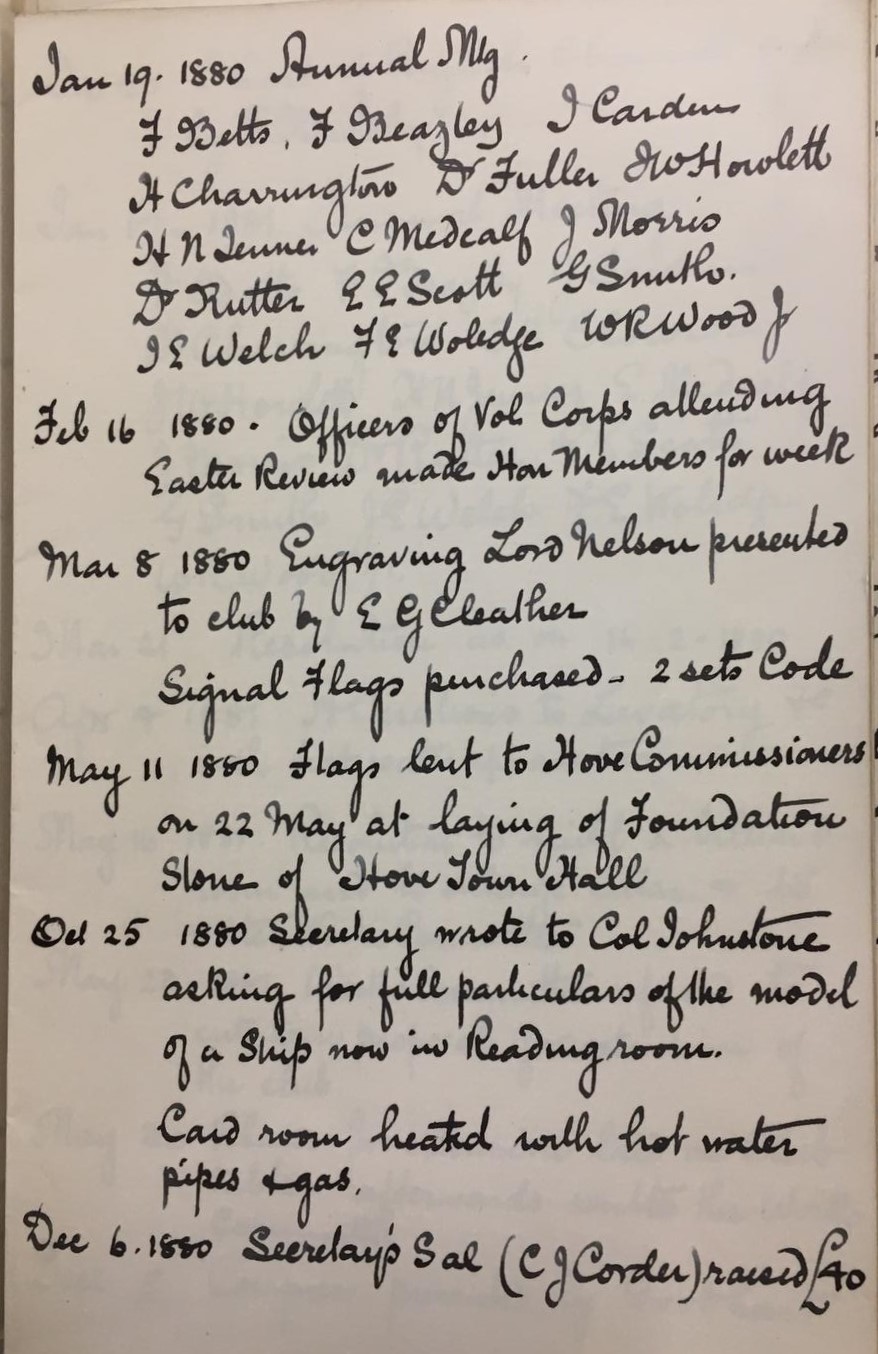 Jan 19. 1880 Annual Mtg.
F Betts, F Beazley J Carden
H Charrington Dr Fuller JW Howlett
H N Jenner C Medcalf J Morris
Dr Rutter E E Scott G Smith.
J E Welch F E Woledge WR Wood Jr
Feb 16 1880. Officers of Vol Corps attending
Easter Review made Hon Members for week
Mar 8 1880 Engraving Lord Nelson presented
to club by E G Cleather
Signal Flags purchased - 2 sets Code
May 11 1880 Flags lent to Hove Commissioners
on 22 May at laying of Foundation
Stone of Hove Town Hall
Oct 25 1880 Secretary wrote to Col Johnstone
asking for full particulars of the model
of a Ship now in Reading room.
Card room heated with hot water
pipes & gas.
Dec 6. 1880 Secretay's Sal (C J Corder) raised £40